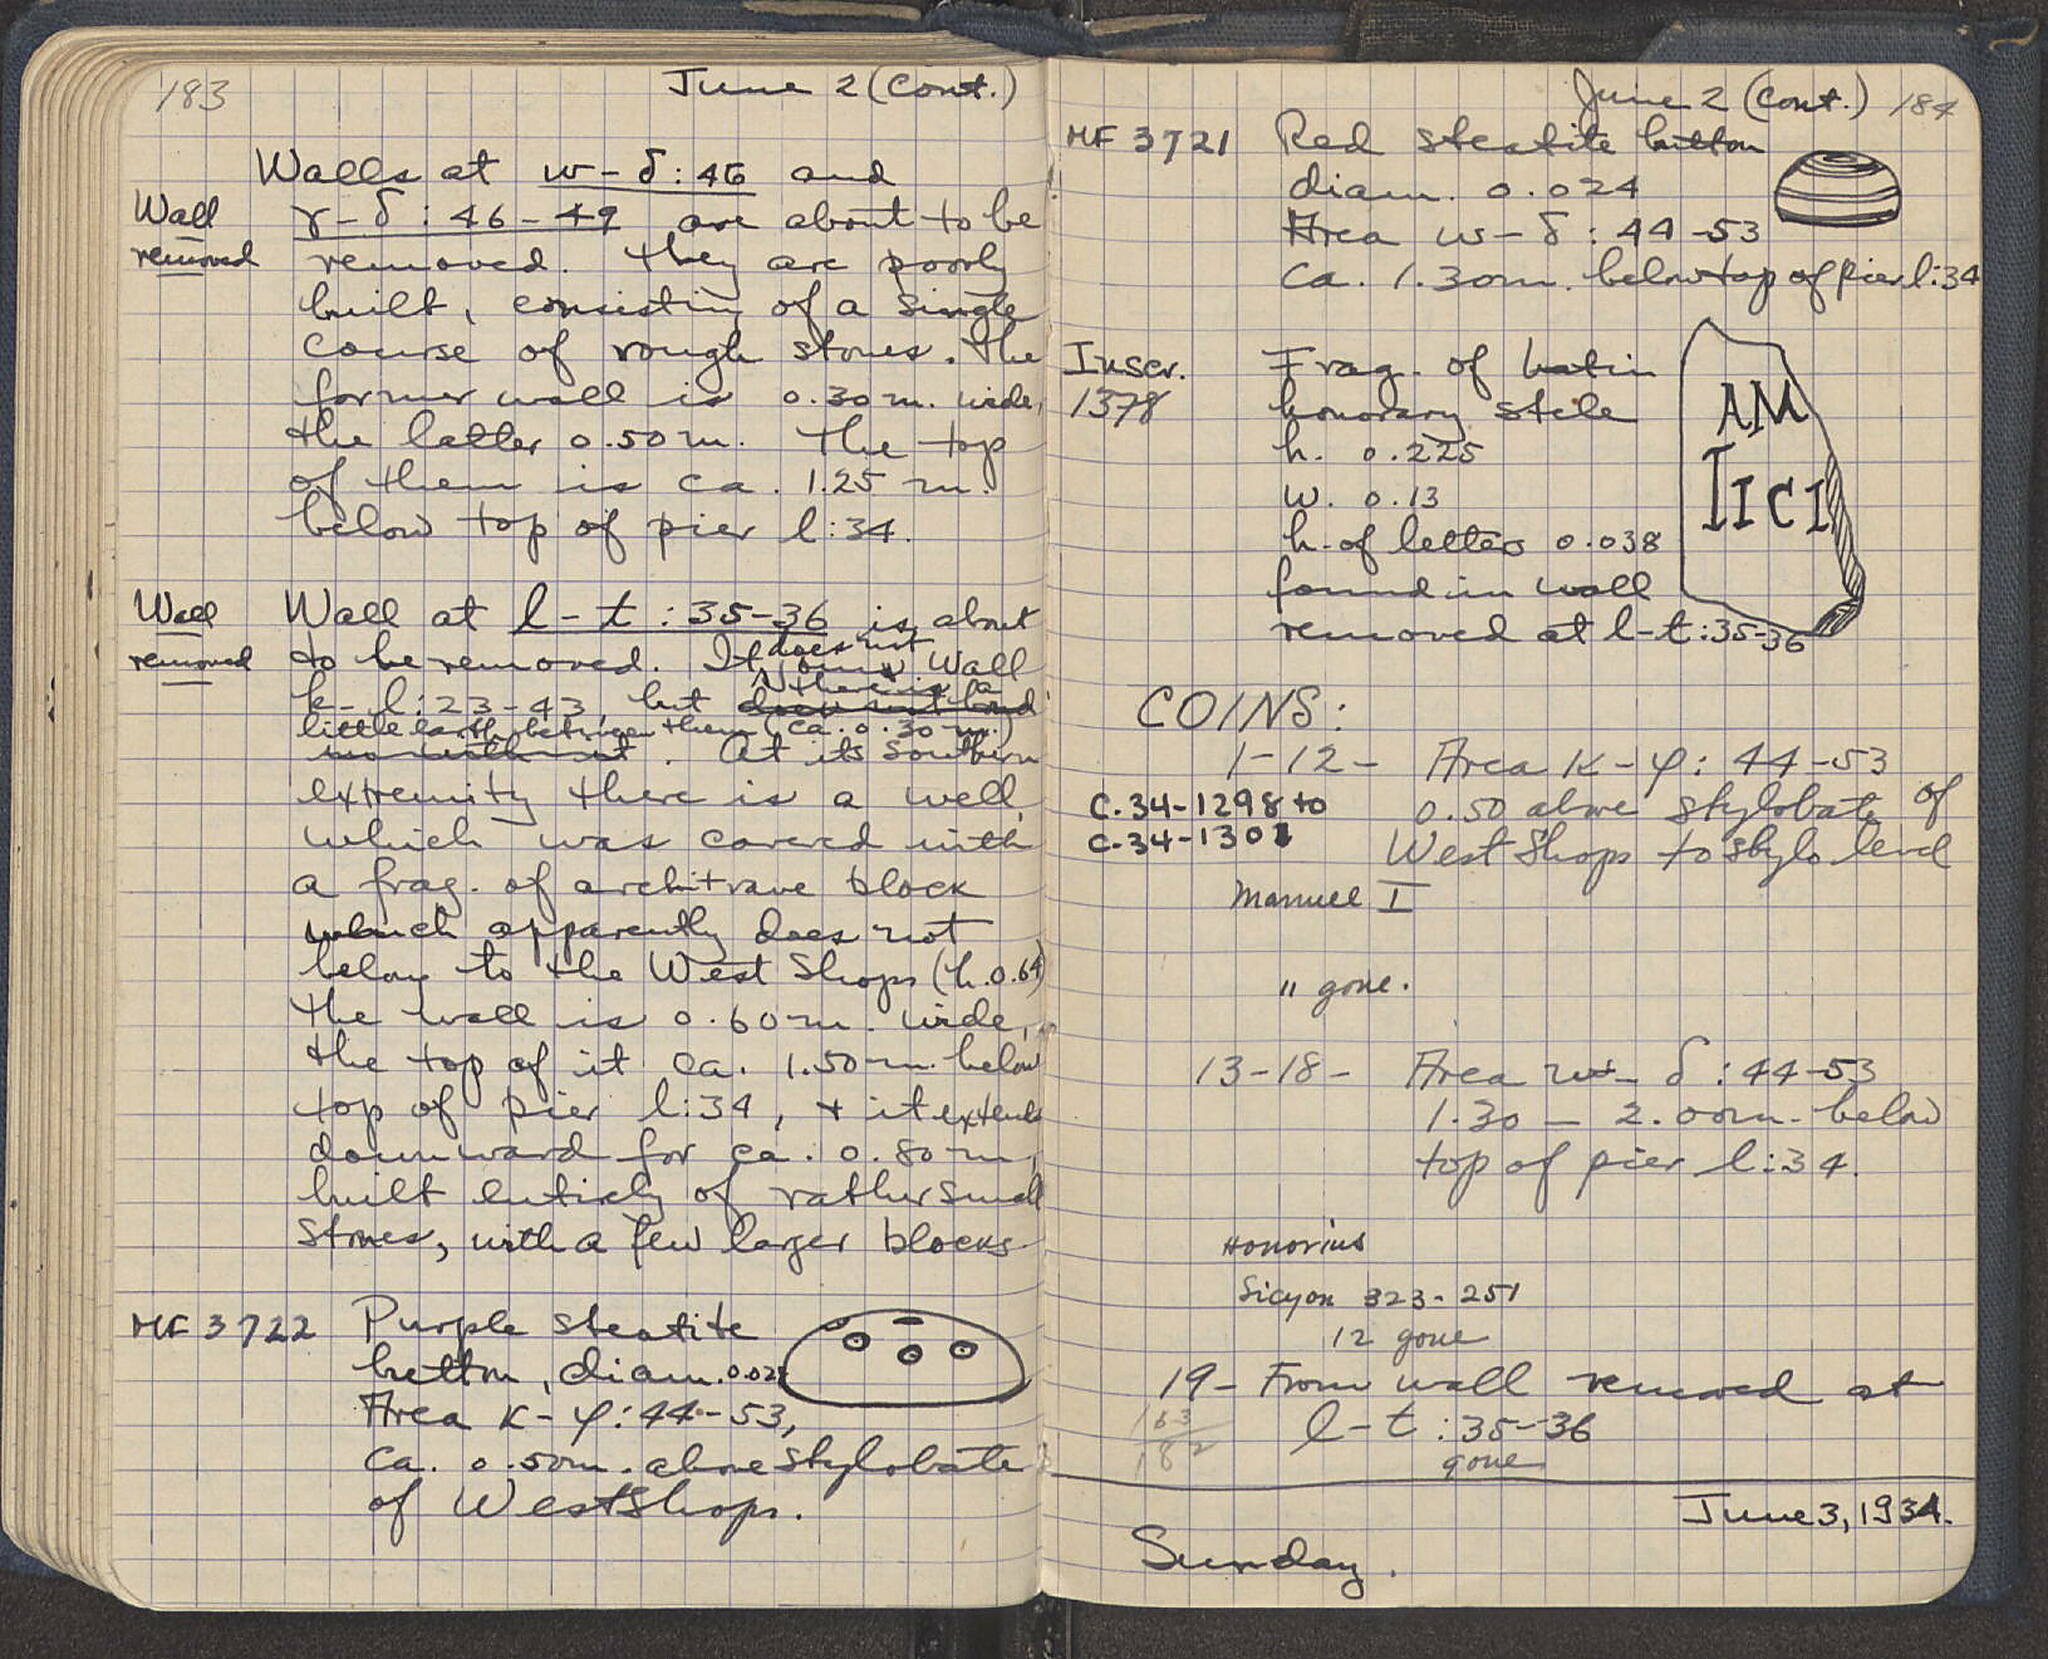 183
June 2 (Cont.)
Walls at w-δ:46 and
Wall
removed
γ-δ:46-49 are about to be
removed. They are poorly
built, consisting of a single
course of rough stones. The
former wall is 0.30 m. wide,
the latter 0.50 m. The top
of them is ca. 1.25 m.
below top of pier l:34.
Wall
removed
Wall at l-t:35-36 is about
to be removed. It does not join Wall
k-l:23-43, but there is a
little earth between them (ca. 0.30 m.)
At its southern
extremity there is a well
which was covered with
a frag. of architrave block
which apparently does not
belong to the West Shops (h. 0.64)
The wall is 0.60 m. wide,
the top of it ca. 1.50 m. below
top of pier l:34, + it extends
downward for ca. 0.80 m,
built entirely of rather small
stones, with a few larger blocks.
MF 3722 Purple steatite
button, diam. 0.02
Area κ-φ:44-53,
ca. 0.50m. above stylobate
of West Shops.
June 2 (Cont.) 184
MF 3721 Red steatite button
diam. 0.024
Area w-δ:44-53
ca. 1.30m. below top of pier l:34
Inscr.
1378
Frag. of Latin
honorary stele
h. 0.225
w. 0.13
h. of letters 0.038
found in wall
removed at l-t:35-36
AM
IICI
COINS:
1-12- Area κ-φ: 44-53
C.34-1298 to
C.34-1301
0.50 above stylobate of
West Shops to stylo level
Manuel I
" gone.
13-18- Area w-δ:44-53
1.30 - 2.00m. below
top of pier l:34.
Honorius
Sicyon 323-251
12 gone
19- From wall removed at
l-t:35-36
163
182
gone
June 3, 1934.
Sunday.